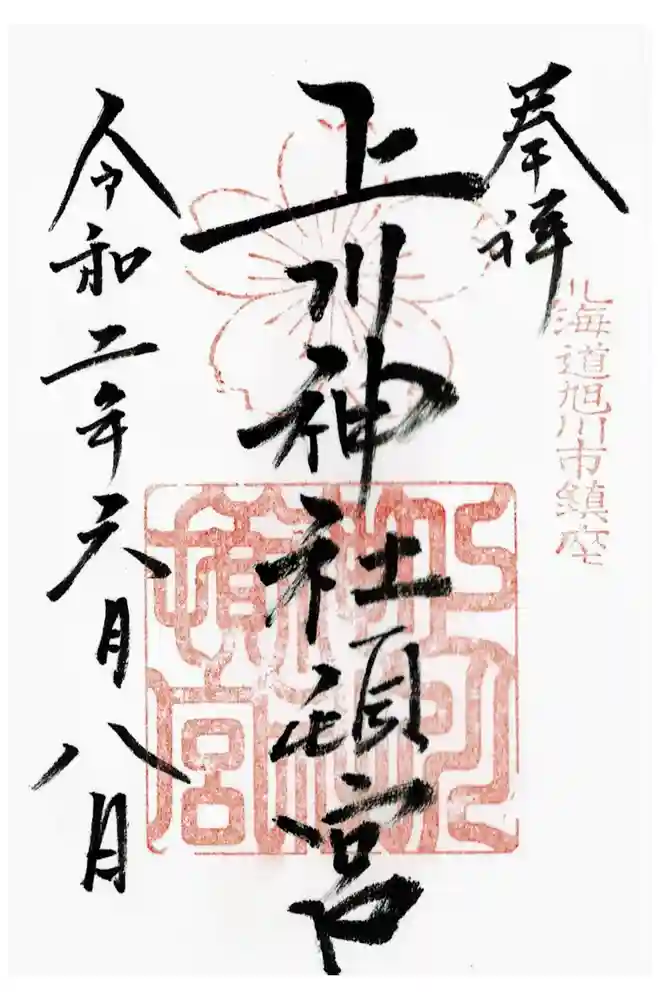 奉拝
北海道旭川市鎮座
上川神社頓宮
上川
神社
頓宮
令和二年六月八日